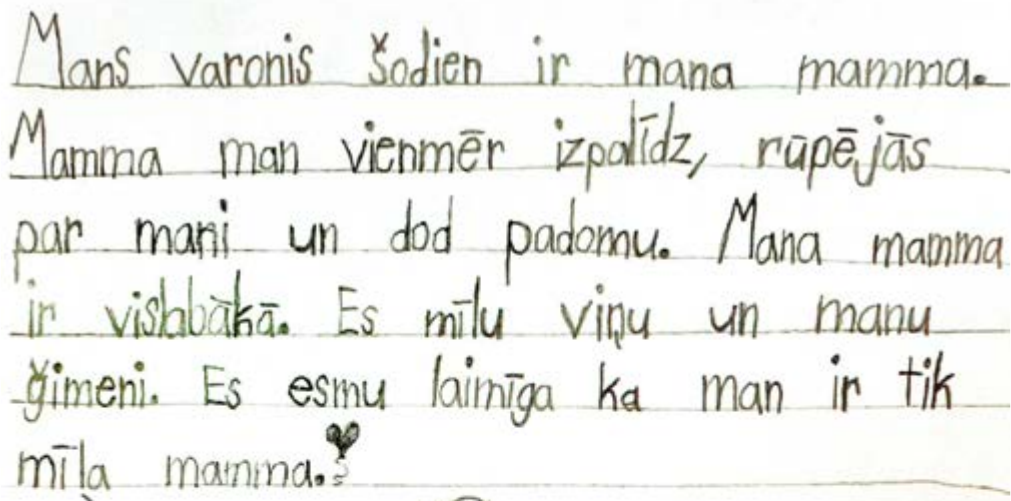 Mans varonis šodien ir mana mamma.
Mamma man vienmēr izpalīdz, rūpējās
par mani un dod padomu. Mana mamma
ir vislabākā. Es mīlu viņu un manu
ģimeni. Es esmu laimīga ka man ir tik
mīļa mamma.